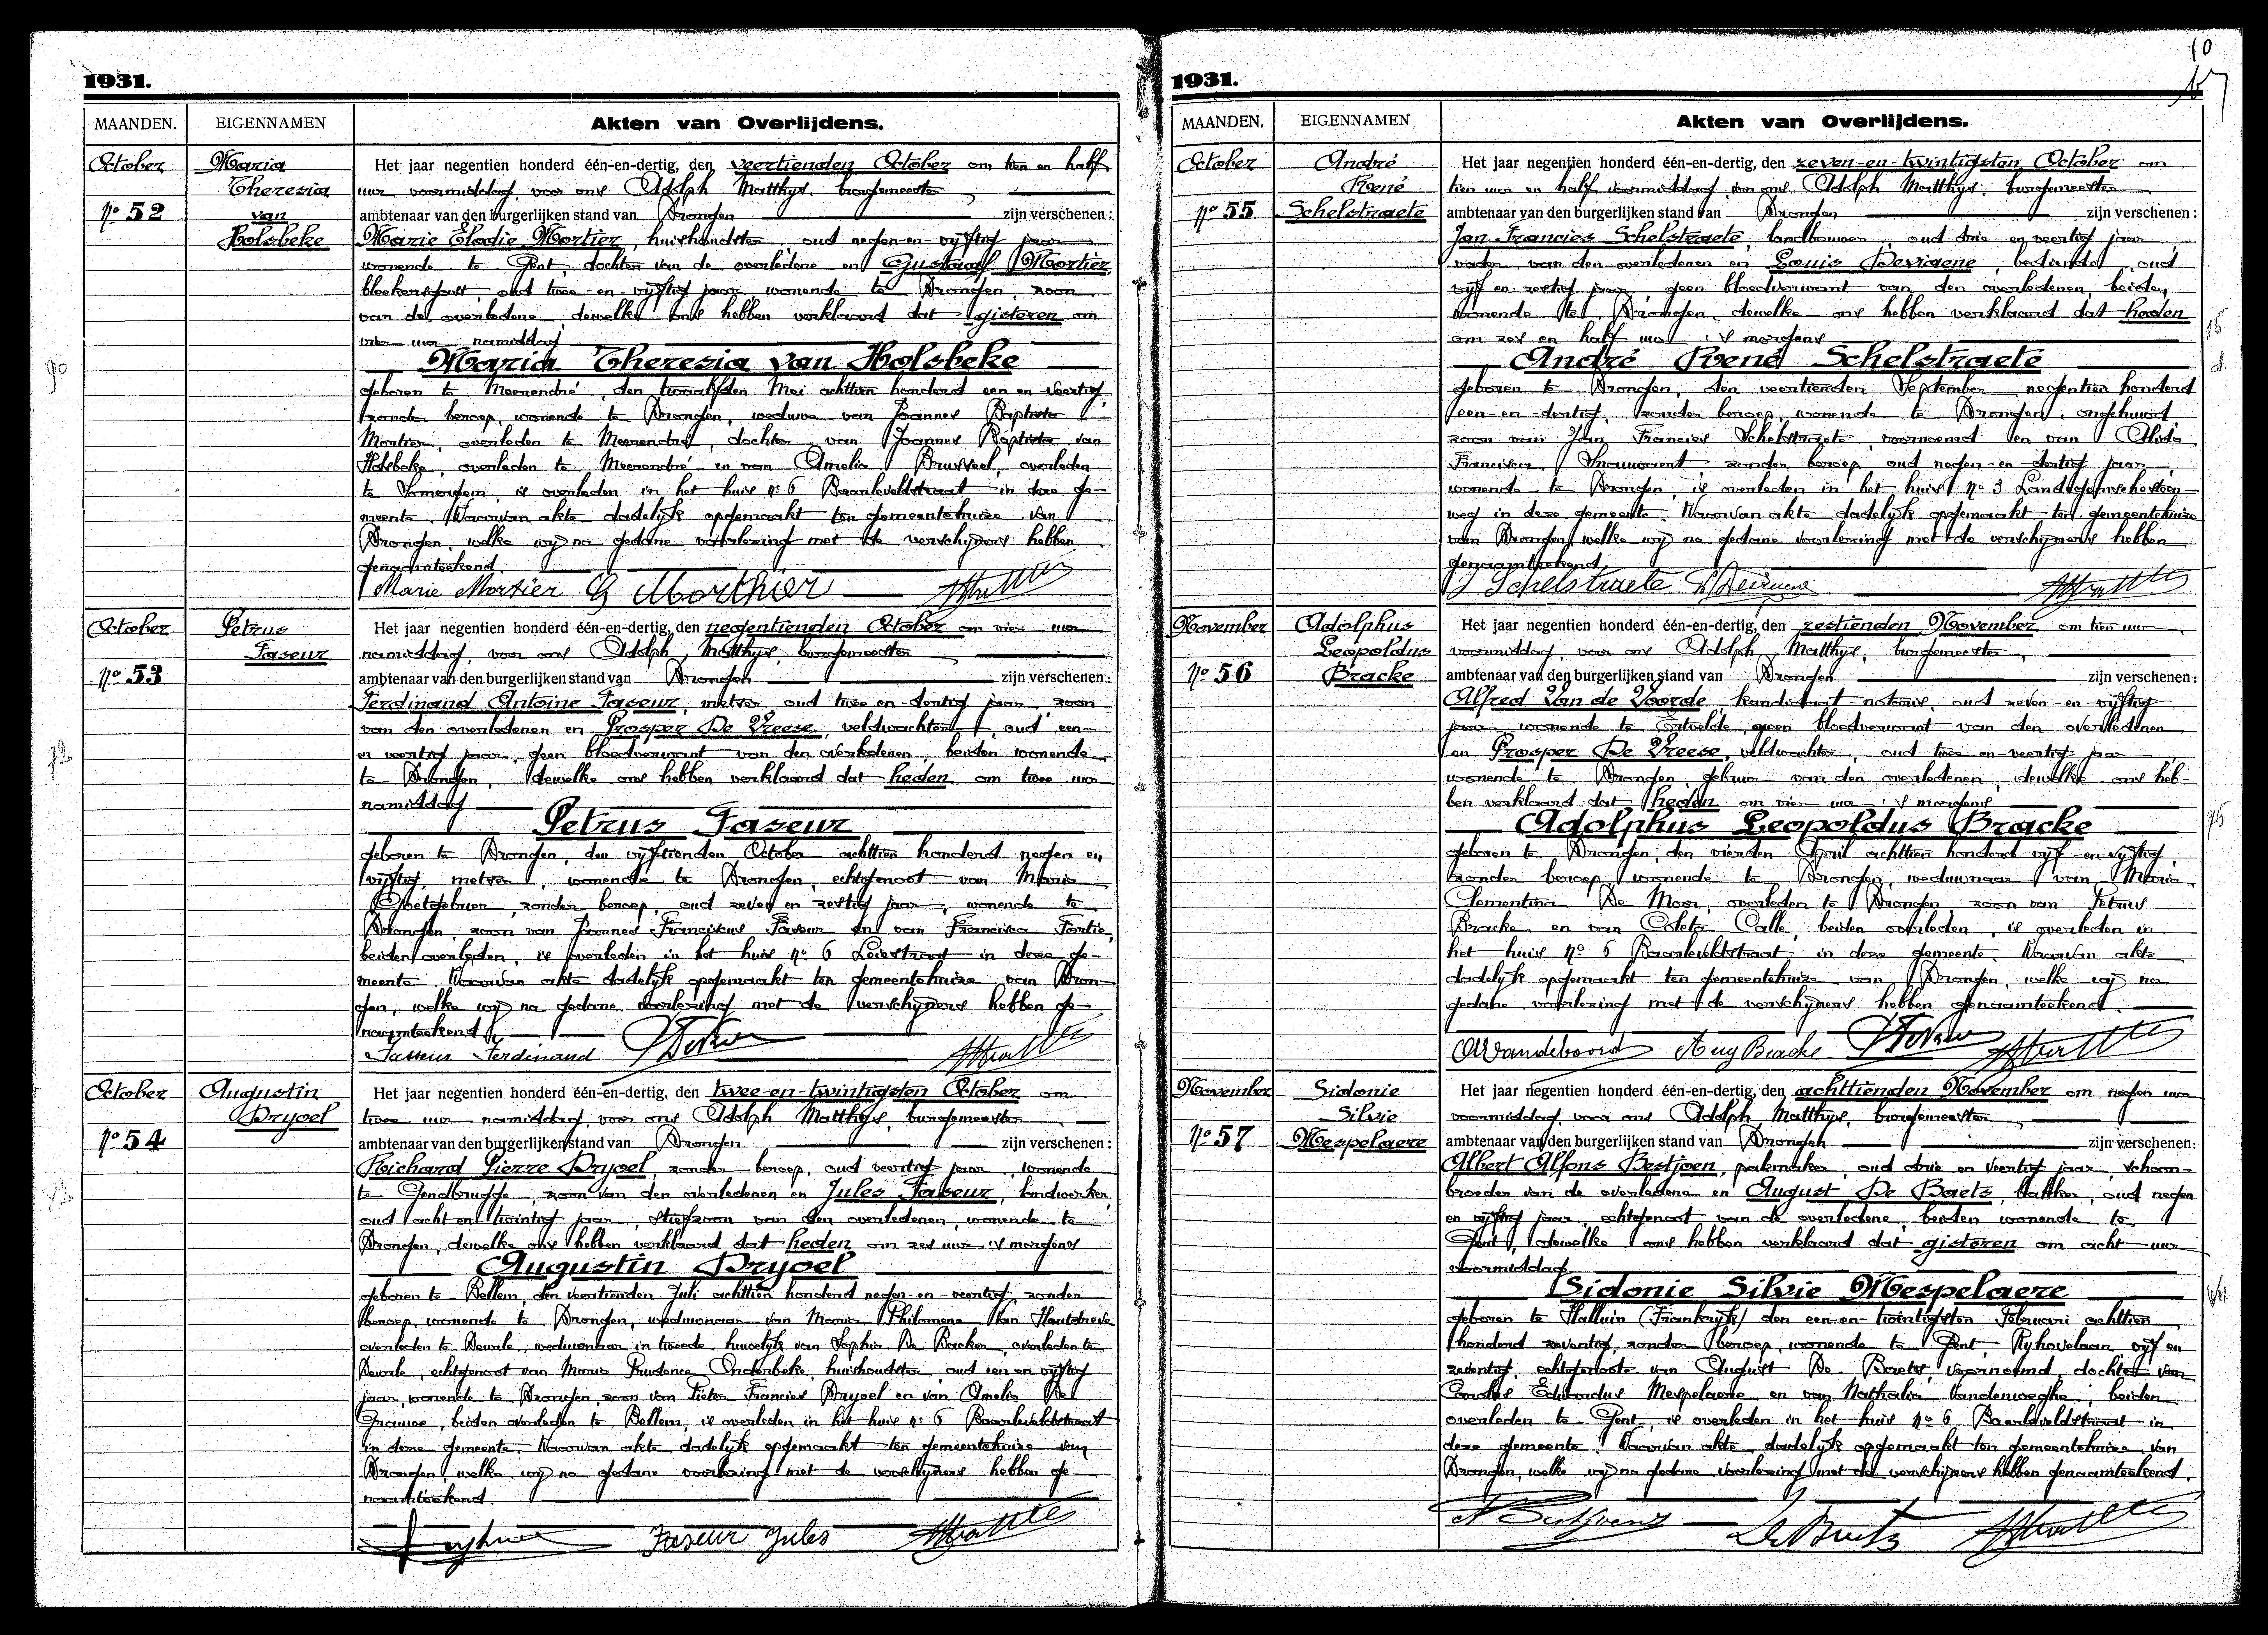 1931.
MAANDEN.
EIGENNAMEN
Akten van Overlijdens.
October
Maria
Theresia
van
Holsbeke
Nº 52
Het jaar negentien honderd één-en-dertig, den veertienden October om tien en half
uur voormiddag, voor ons Adolph Matthys, burgemeester
ambtenaar van den burgerlijken stand van Drongen zijn verschenen:
Marie Elodie Mortier, huishoudster, oud negen-en-vijftig jaar
wonende te Gent, dochter van de overledene en Gustaaf Mortier
bleekersgast, oud twee-en-vijftig jaar wonende te Drongen, zoon
van de overledene, dewelke ons hebben verklaard dat gisteren om
vier uur namiddag
Maria Theresia van Holsbeke
geboren te Meerendré, den twaalfden Mei achttien honderd een en veertig,
zonder beroep, wonende te Drongen, weduwe van Joannes Baptiste
Mortier, overleden te Meerendré, dochter van Joannes Baptiste van
Holsbeke, overleden te Meerendré en van Amelia Brusseel, overleden
te Somergem, is overleden in het huis nº 6 Baarleveldstraat in deze ge-
meente. Waarvan akte dadelijk opgemaakt ten gemeentehuize van
Drongen, welke wij na gedane voorlezing met de verschijners hebben
genaamteekend.
Marie Mortier G Morthier
90
October
Petrus
Faseur
Nº 53
Het jaar negentien honderd één-en-dertig, den negentienden October om vier uur
namiddag, voor ons Adolph Matthys, burgemeester
ambtenaar van den burgerlijken stand van Drongen zijn verschenen:
Ferdinand Antoine Faseur, metser, oud twee en dertig jaar, zoon
van den overledenen en Prosper De Vreese, veldwachter, oud een-
en veertig jaar, geen bloedverwant van den overledenen, beiden wonende
te Drongen, dewelke ons hebben verklaard dat heden om twee uur
namiddag
Petrus Faseur
geboren te Drongen, den vijftienden October achttien honderd negen en
vijftig, metser, wonende te Drongen, echtgenoot van Maria
Goetgebuer, zonder beroep, oud zeven en zestig jaar, wonende te
Drongen, zoon van Joannes Franciscus Faseur en van Francisca Fortie,
beiden overleden, is overleden in het huis nº 6 Leiestraat in deze ge-
meente. Waarvan akte dadelijk opgemaakt ten gemeentehuize van Dron-
gen, welke wij na gedane voorlezing met de verschijners hebben ge-
naamteekend
Fasseur Ferdinand
72
October
Augustin
Dryoel
Nº 54
Het jaar negentien honderd één-en-dertig, den twee-en-twintigsten October om
twee uur namiddag, voor ons Adolph Matthys, burgemeester
ambtenaar van den burgerlijken stand van Drongen zijn verschenen:
Richard Pierre Dryoel, zonder beroep, oud veertig jaar, wonende
te Gendbrugge, zoon van den overledenen en Jules Faseur, landwerker,
oud acht en twintig jaar, stiefzoon van den overledenen, wonende te
Drongen, dewelke ons hebben verklaard dat heden om zes uur 's morgens
Augustin Dryoel
geboren te Bellem, den veertienden Juli achttien honderd negen-en-veertig, zonder
beroep, wonende te Drongen, weduwnaar van Maria Philomena Van Hautrieve
overleden te Deurle, weduwnaar in tweede huwelijk van Sophia De Backer, overleden te
Deurle, echtgenoot van Maria Prudence Onderbeke, huishoudster, oud een en vijftig
jaar, wonende te Drongen, zoon van Pieter Francies Dryoel en van Amelia De
Grauwe, beiden overleden te Bellem, is overleden in het huis nº 6 Baarleveldstraat
in deze gemeente. Waarvan akte dadelijk opgemaakt ten gemeentehuize van
Drongen, welke wij na gedane voorlezing met de verschijners hebben ge-
naamteekend.
Faseur Jules
1931.
10
MAANDEN.
EIGENNAMEN
Akten van Overlijdens.
October
André
René
Schelstraete
Nº 55
Het jaar negentien honderd één-en-dertig, den zeven-en-twintigsten October om
tien uur en half voormiddag, voor ons Adolph Matthys, burgemeester
ambtenaar van den burgerlijken stand van Drongen zijn verschenen:
Jan Francies Schelstraete, landbouwer, oud drie en veertig jaar,
vader van den overledenen en Louis Devigene, bediende, oud
vijf en zestig jaar, geen bloedverwant van den overledenen, beiden
wonende te Drongen, dewelke ons hebben verklaard dat heden
om zes en half uur 's morgens
André René Schelstraete
geboren te Drongen, den veertienden September negentien honderd
een-en-dertig, zonder beroep, wonende te Drongen, ongehuwd,
zoon van Jan Francies Schelstraete, voornoemd en van Alida
Francisca zonder beroep, oud negen-en-dertig jaar,
wonende te Drongen, is overleden in het huis nº 3 Landegemschesteen-
weg in deze gemeente. Waarvan akte dadelijk opgemaakt ten gemeentehuize
van Drongen, welke wij na gedane voorlezing met de verschijners hebben
genaamteekend
J Schelstraete
November
Adolphus
Leopoldus
Bracke
Nº 56
Het jaar negentien honderd één-en-dertig, den zestienden November om tien uur
voormiddag, voor ons Adolph Matthys, burgemeester
ambtenaar van den burgerlijken stand van Drongen zijn verschenen:
Alfred Van de Voorde, kandidaat-notaris, oud zeven-en-vijftig
jaar, wonende te Ertvelde, geen bloedverwant van den overledenen
en Prosper De Vreese, veldwachter, oud twee en-veertig jaar
wonende te Drongen, gebuur van den overledenen, dewelke ons heb-
ben verklaard dat heden om vier uur 's morgens
Adolphus Leopoldus Bracke
geboren te Drongen, den vierden April achttien honderd vijf-en-vijftig,
zonder beroep, wonende te Drongen, weduwnaar van Maria
Clementina De Moor, overleden te Drongen, zoon van Petrus
Bracke en van Coleta Calle, beiden overleden, is overleden in
het huis nº 6 Baarleveldstraat in deze gemeente. Waarvan akte
dadelijk opgemaakt ten gemeentehuize van Drongen, welke wij na
gedane voorlezing met de verschijners hebben genaamteekend.
Aug Bracke
November
Sidonie
Silvie
Mespelaere
Nº 57
Het jaar negentien honderd één-en-dertig, den achttienden November om negen uur
voormiddag, voor ons Adolph Matthys, burgemeester
ambtenaar van den burgerlijken stand van Drongen zijn verschenen:
Albert Alfons Bestjoen, pakmaker, oud drie en veertig jaar, schoon-
broeder van de overledene en August De Baets, bakker, oud negen
en vijftig jaar, echtgenoot van de overledene, beiden wonende te
Gent, dewelke ons hebben verklaard dat gisteren om acht uur
voormiddag
Sidonie Silvie Mespelaere
geboren te Halluin (Frankrijk) den een-en-twintigsten Februari achttien
honderd zeventig, zonder beroep, wonende te Gent, Ryhovelaan, vijf en
zeventig, echtgenoote van August De Baets, voornoemd, dochter van
Carolus Eduardus Mespelaere en van Nathalia Vandenweghe, beiden
overleden te Gent, is overleden in het huis nº 6 Baarleveldstraat in
deze gemeente. Waarvan akte dadelijk opgemaakt ten gemeentehuize van
Drongen, welke wij na gedane voorlezing met de verschijners hebben genaamteekend.
De Baets